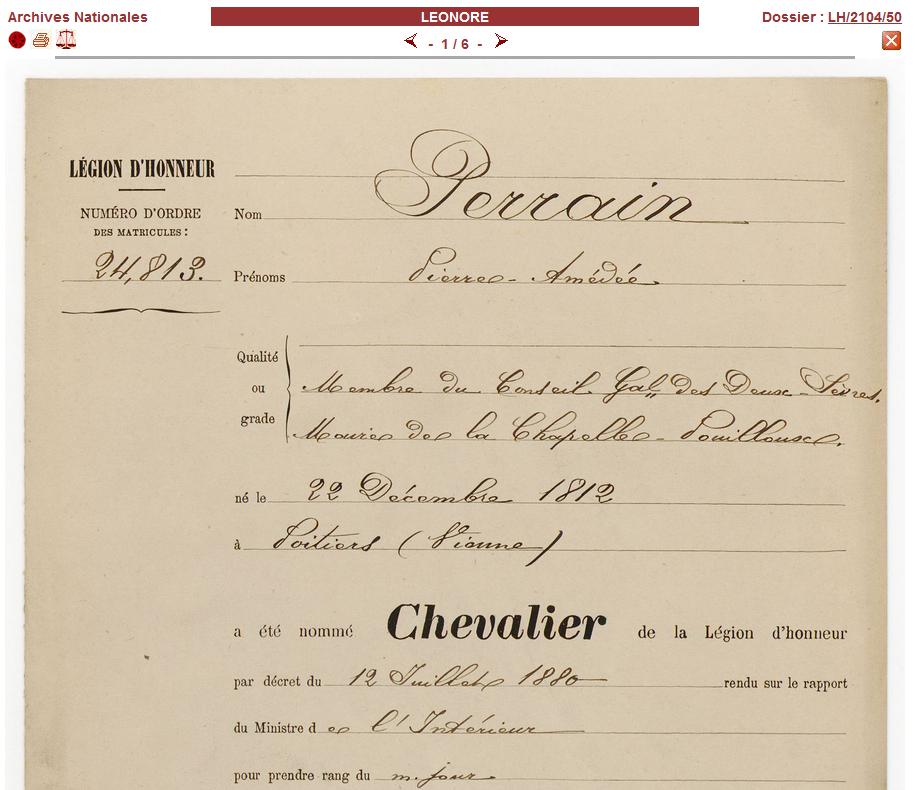 Archives Nationales
LEONORE
Dossier : LH/2104/50
- 1 / 6 -
LÉGION D'HONNEUR
NUMÉRO D'ORDRE
DES MATRICULES :
24,813.
Nom Perrain
Prénoms Pierre-Amédée
Qualité
ou
grade
Membre du Conseil Gal, des Deux-Sèvres,
Maire de la Chapelle-Pouilloux.
né le 22 Décembre 1812
à Poitiers (Vienne)
a été nommé Chevalier de la Légion d'honneur
par décret du 12 Juillet 1880 rendu sur le rapport
du Ministre de l'Intérieur
pour prendre rang du m. jour